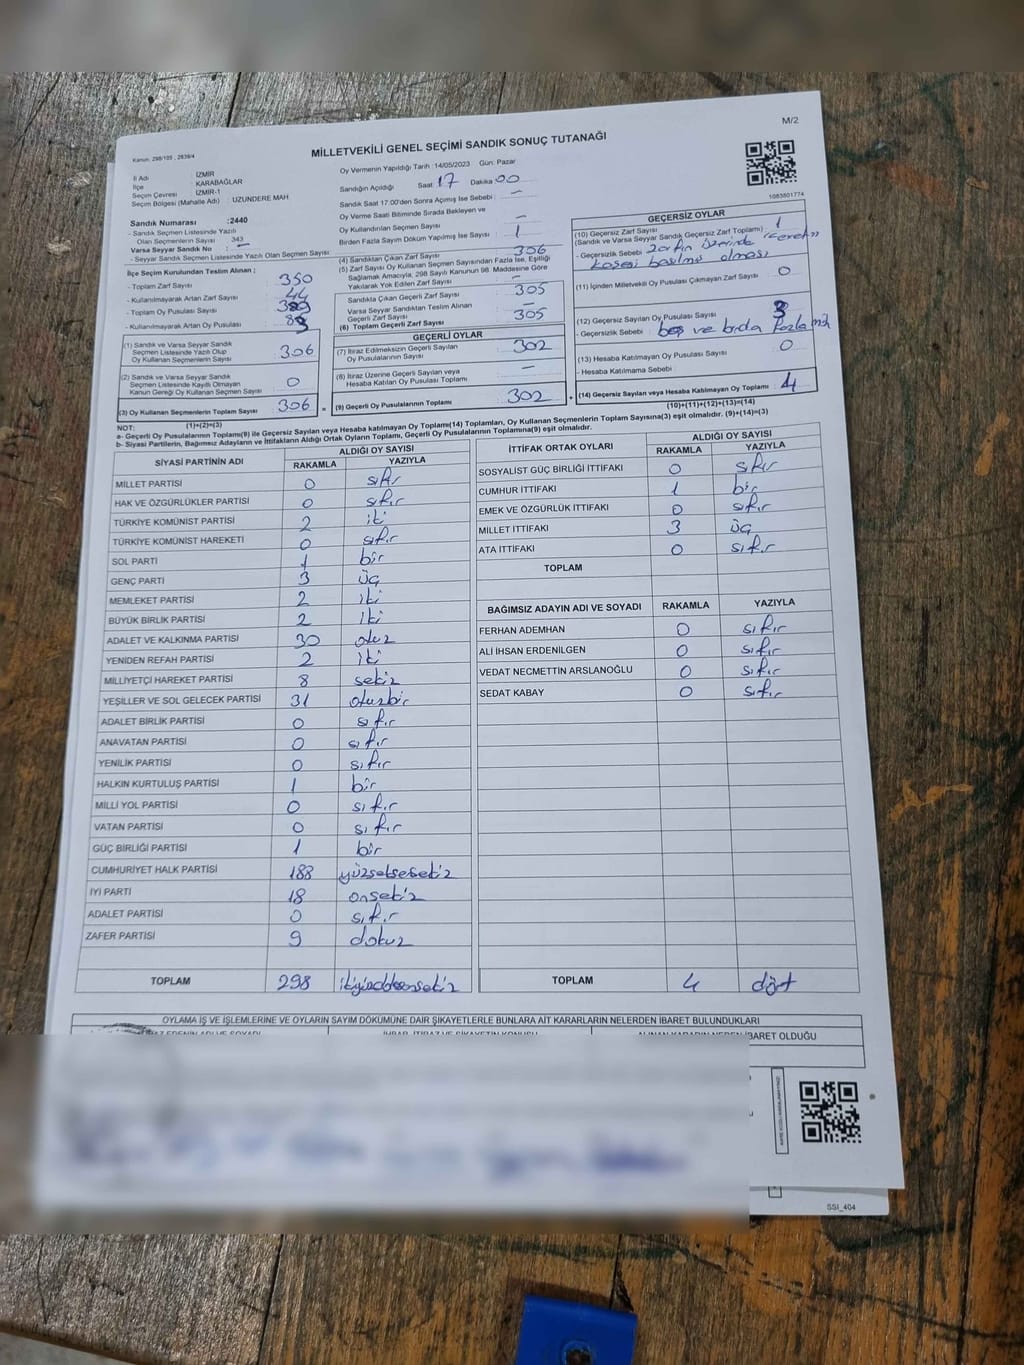 M/2
MİLLETVEKİLİ GENEL SEÇİMİ SANDIK SONUÇ TUTANAĞI
Kanun: 298/105 , 2839/4
İl Adı İZMİR
İlçe KARABAĞLAR
Seçim Çevresi İZMİR-1
Seçim Bölgesi (Mahalle Adı) : UZUNDERE MAH
Sandık Numarası :2440
- Sandık Seçmen Listesinde Yazılı
Olan Seçmenlerin Sayısı 343
Varsa Seyyar Sandık No : —
- Seyyar Sandık Seçmen Listesinde Yazılı Olan Seçmen Sayısı
İlçe Seçim Kurulundan Teslim Alınan ;
- Toplam Zarf Sayısı 350
- Kullanılmayarak Artan Zarf Sayısı 44
- Toplam Oy Pusulası Sayısı
- Kullanılmayarak Artan Oy Pusulası
(1) Sandık ve Varsa Seyyar Sandık
Seçmen Listesinde Yazılı Olup
Oy Kullanan Seçmenlerin Sayısı 306
(2) Sandık ve Varsa Seyyar Sandık
Seçmen Listesinde Kayıtlı Olmayan
Kanun Gereği Oy Kullanan Seçmen Sayısı 0
(3) Oy Kullanan Seçmenlerin Toplam Sayısı 306 =
(1)+(2)=(3)
Oy Vermenin Yapıldığı Tarih :14/05/2023 Gün: Pazar
Sandığın Açıldığı Saat 17 Dakika 00
Sandık Saat 17:00'den Sonra Açılmış İse Sebebi : —
Oy Verme Saati Bitiminde Sırada Bekleyen ve
Oy Kullandırılan Seçmen Sayısı —
Birden Fazla Sayım Döküm Yapılmış İse Sayısı : 1
(4) Sandıktan Çıkan Zarf Sayısı 306
(5) Zarf Sayısı Oy Kullanan Seçmen Sayısından Fazla İse, Eşitliği
Sağlamak Amacıyla, 298 Sayılı Kanunun 98. Maddesine Göre
Yakılarak Yok Edilen Zarf Sayısı —
Sandıkta Çıkan Geçerli Zarf Sayısı 305
Varsa Seyyar Sandıktan Teslim Alınan
Geçerli Zarf Sayısı —
(6) Toplam Geçerli Zarf Sayısı 305
GEÇERLİ OYLAR
(7) İtiraz Edilmeksizin Geçerli Sayılan
Oy Pusulalarının Sayısı 302
(8) İtiraz Üzerine Geçerli Sayılan veya
Hesaba Katılan Oy Pusulası Toplamı —
(9) Geçerli Oy Pusulalarının Toplamı 302 +
1083801774
GEÇERSİZ OYLAR
(10) Geçersiz Zarf Sayısı 1
(Sandık ve Varsa Seyyar Sandık Geçersiz Zarf Toplamı)
- Geçersizlik Sebebi zarfın üzerinde
basılmış olması
(11) İçinden Milletvekili Oy Pusulası Çıkmayan Zarf Sayısı 0
(12) Geçersiz Sayılan Oy Pusulası Sayısı 3
- Geçersizlik Sebebi : boş ve birda fazla
(13) Hesaba Katılmayan Oy Pusulası Sayısı 0
- Hesaba Katılmama Sebebi :
(14) Geçersiz Sayılan veya Hesaba Katılmayan Oy Toplamı : 4
(10)+(11)+(12)+(13)=(14)
NOT:
a- Geçerli Oy Pusulalarının Toplamı(9) ile Geçersiz Sayılan veya Hesaba katılmayan Oy Toplamı(14) Toplamları, Oy Kullanan Seçmenlerin Toplam Sayısına(3) eşit olmalıdır. (9)+(14)=(3)
b- Siyasi Partilerin, Bağımsız Adayların ve İttifakların Aldığı Ortak Oyların Toplamı, Geçerli Oy Pusulalarının Toplamına(9) eşit olmalıdır.
SİYASİ PARTİNİN ADI ALDIĞI OY SAYISI
RAKAMLA YAZIYLA
MİLLET PARTİSİ 0 sıfır
HAK VE ÖZGÜRLÜKLER PARTİSİ 0 sıfır
TÜRKİYE KOMÜNİST PARTİSİ 2 iki
TÜRKİYE KOMÜNİST HAREKETİ 0 sıfır
SOL PARTİ 1 bir
GENÇ PARTİ 3 üç
MEMLEKET PARTİSİ 2 iki
BÜYÜK BİRLİK PARTİSİ 2 iki
ADALET VE KALKINMA PARTİSİ 30 otuz
YENİDEN REFAH PARTİSİ 2 iki
MİLLİYETÇİ HAREKET PARTİSİ 8 sekiz
YEŞİLLER VE SOL GELECEK PARTİSİ 31 otuzbir
ADALET BİRLİK PARTİSİ 0 sıfır
ANAVATAN PARTİSİ 0 sıfır
YENİLİK PARTİSİ 0 sıfır
HALKIN KURTULUŞ PARTİSİ 1 bir
MİLLİ YOL PARTİSİ 0 sıfır
VATAN PARTİSİ 0 sıfır
GÜÇ BİRLİĞİ PARTİSİ 1 bir
CUMHURİYET HALK PARTİSİ 188 yüzseksesekiz
İYİ PARTİ 18 onsekiz
ADALET PARTİSİ 0 sıfır
ZAFER PARTİSİ 9 dokuz
TOPLAM 298 ikiyüzdoksonsekiz
İTTİFAK ORTAK OYLARI ALDIĞI OY SAYISI
RAKAMLA YAZIYLA
SOSYALİST GÜÇ BİRLİĞİ İTTİFAKI 0 sıfır
CUMHUR İTTİFAKI 1 bir
EMEK VE ÖZGÜRLÜK İTTİFAKI 0 sıfır
MİLLET İTTİFAKI 3 üç
ATA İTTİFAKI 0 sıfır
TOPLAM
BAĞIMSIZ ADAYIN ADI VE SOYADI RAKAMLA YAZIYLA
FERHAN ADEMHAN 0 sıfır
ALİ İHSAN ERDENİLGEN 0 sıfır
VEDAT NECMETTİN ARSLANOĞLU 0 sıfır
SEDAT KABAY 0 sıfır
TOPLAM 4 dört
OYLAMA İŞ VE İŞLEMLERİNE VE OYLARIN SAYIM DÖKÜMÜNE DAİR ŞİKAYETLERLE BUNLARA AİT KARARLARIN NELERDEN İBARET BULUNDUKLARI
İHBAR, İTİRAZ VE ŞİKAYETİN KONUSU ALINAN KARARIN NEDEN İBARET OLDUĞU
SSI_404